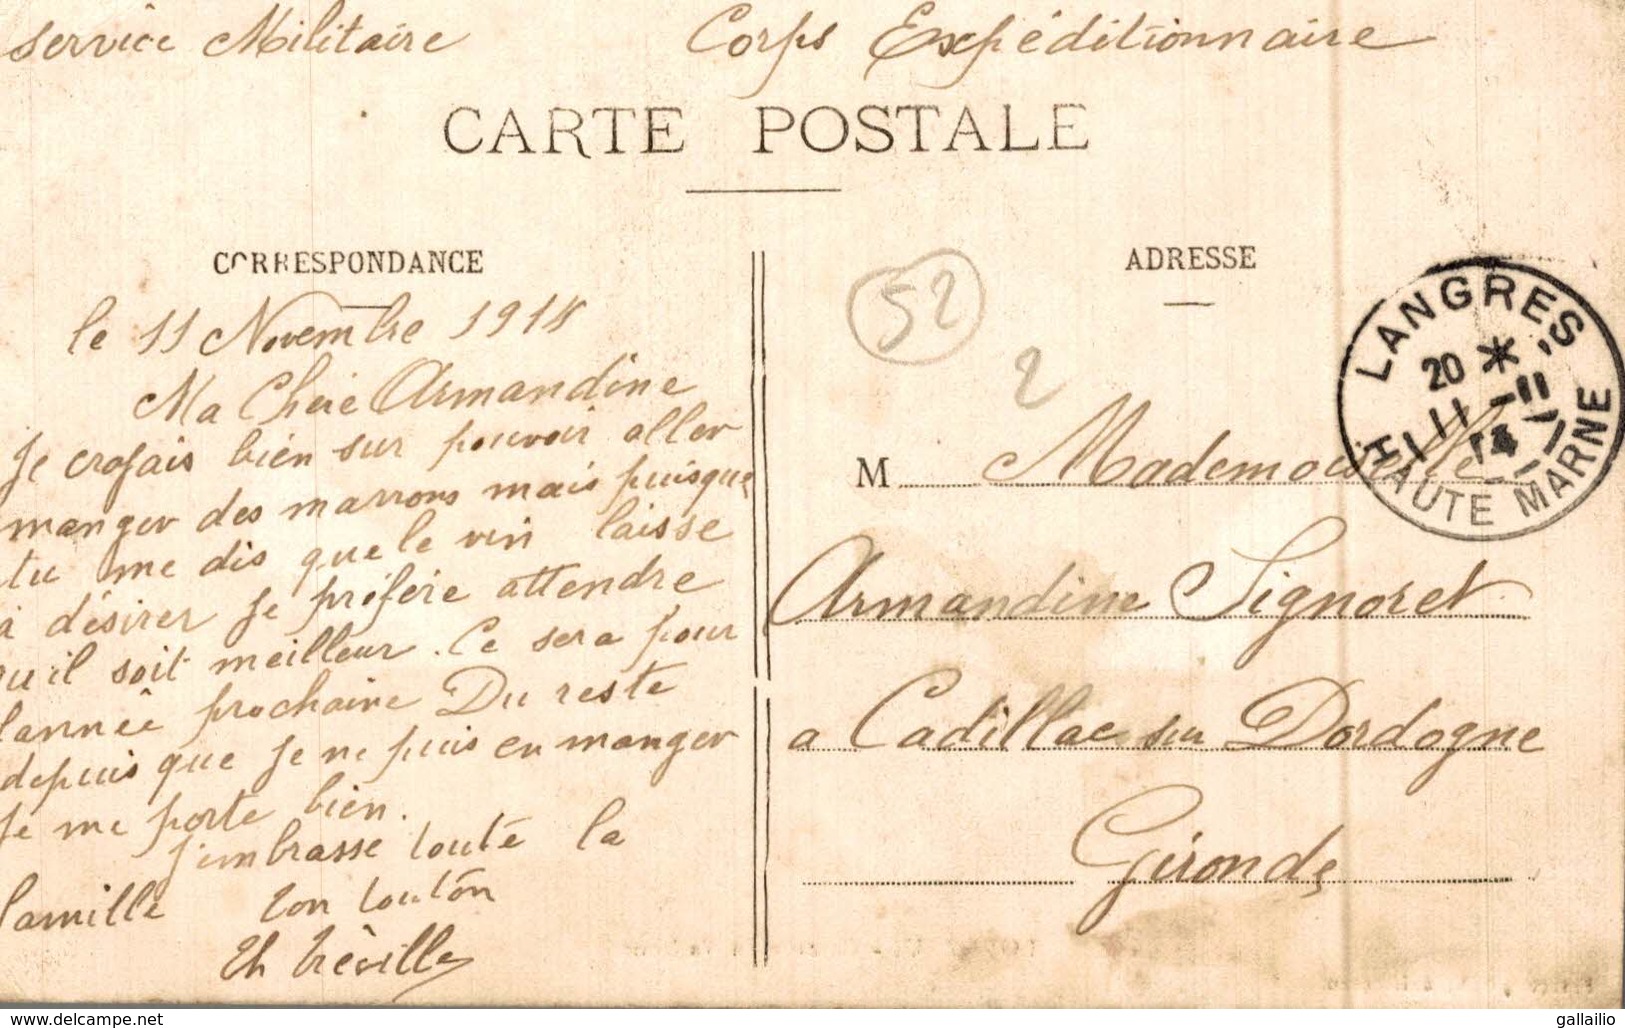 service Militaire Corps Expéditionnaire
CARTE POSTALE
CORRESPONDANCE
le 11 Novembre 1914
Ma Chère Armandine
Je croyais bien sur pouvoir aller
manger des marrons mais puisque
tu me dis que le vin laisse
à désirer je préfère attendre
qu'il soit meilleur. Ce sera pour
l'année prochaine Du reste
depuis que je ne puis en manger
je me porte bien.
J'embrasse toute la
famille ton tonton
Ch Tréville
ADRESSE
52
2
LANGRES
20 *
11 - 11
14
HAUTE MARNE
M Mademoiselle
Armandine Signoret
a Cadillac sur Dordogne
Gironde
http://www.delcampe.net
gallailio